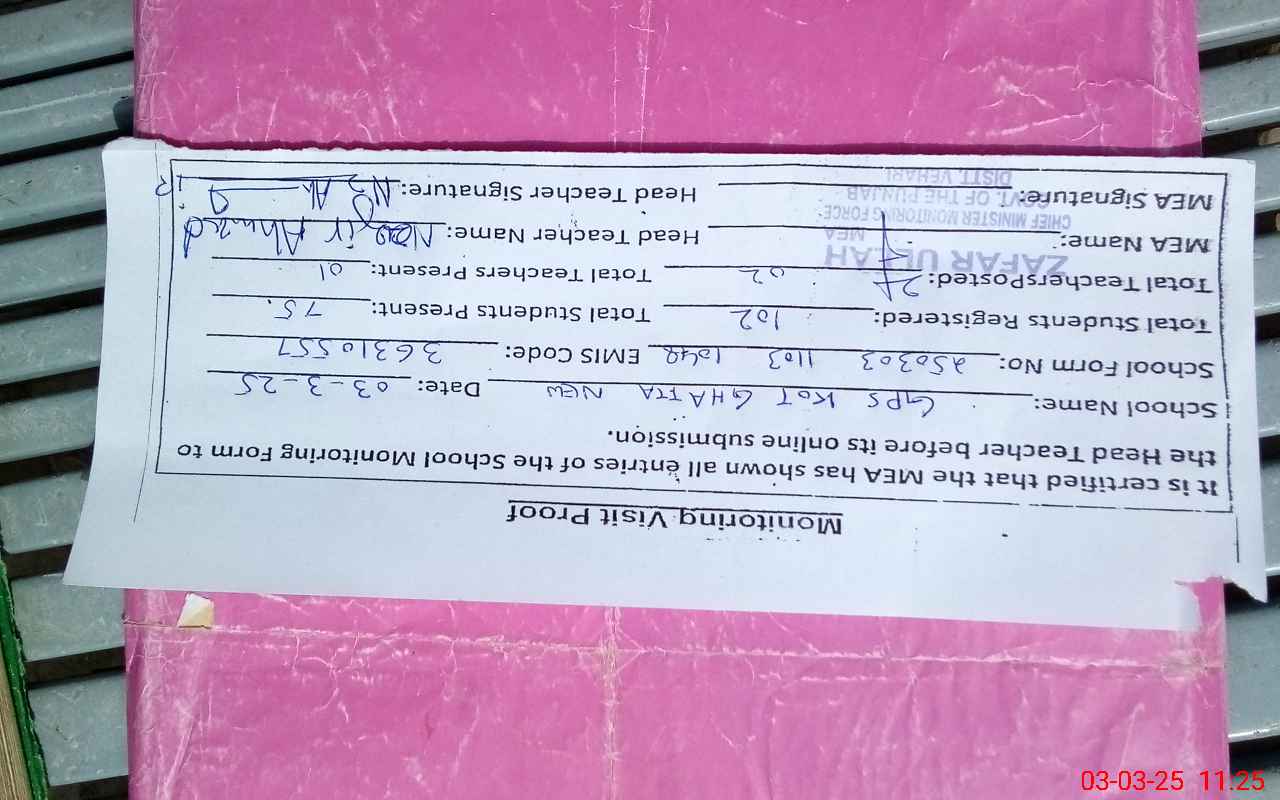 Monitoring Visit Proof
It is certified that the MEA has shown all entries of the School Monitoring Form to
the Head Teacher before its online submission.
School Name: GPS KOT GHATTA NEW Date: 03-3-25
School Form No: 250303 1103 1042 EMIS Code: 36310557
Total Students Registered: 102 Total Students Present: 75.
Total TeachersPosted: 02 Total Teachers Present: 01
MEA Name: Head Teacher Name: Nazir Ahmed
MEA Signature: Head Teacher Signature:
ZAFAR ULLAH
MEA
CHIEF MINISTER MONITORING FORCE
GOVT. OF THE PUNJAB
DISTT. VEHARI
03-03-25 11.25